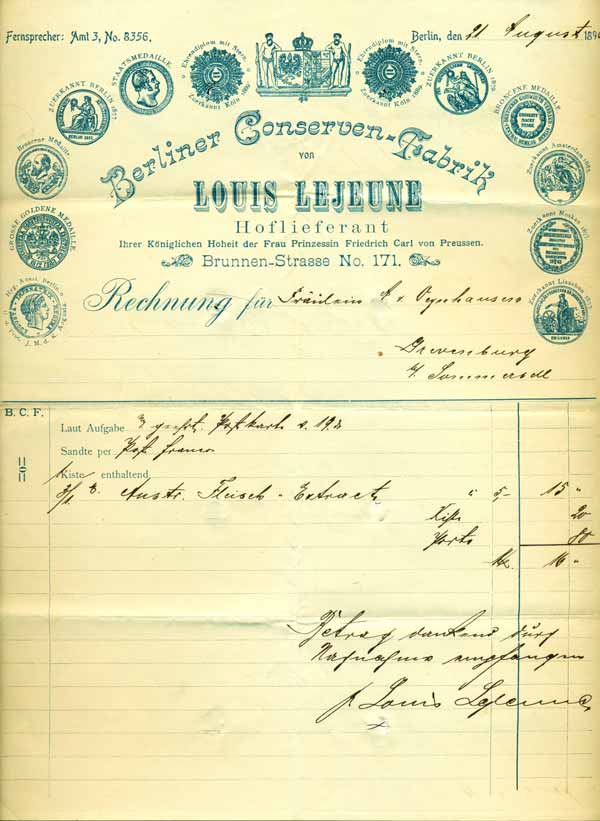 Fernsprecher: Amt 3, No. 8356.
Berlin, den 21 August 189
Ehrendiplom mit Stern. Zuerkannt Köln
Ehrendiplom mit Stern. Zuerkannt Köln
STAATSMEDAILLE.
ZUERKANNT BERLIN 1877
ZUERKANNT BERLIN
BRONCENE MEDAILLE
Broncene Medaille.
Zuerkannt Amsterdam
GROSSE GOLDENE MEDAILLE.
Zuerkannt Moskau
Zuerkannt Lissabon
Hyg. Ausst. Berlin.
J. M. d. K.
Berliner Conserven-Fabrik
von
LOUIS LEJEUNE
Hoflieferant
Ihrer Königlichen Hoheit der Frau Prinzessin Friedrich Carl von Preussen.
Brunnen-Strasse No. 171.
Rechnung für Fräulein A v Oeynhausen
Grevenburg
Sommersell
B. C. F.
Laut Aufgabe geehrt. Postkarte v. 19.
Sandte per Post franco
1 Kiste enthaltend
3/1 Austr. Fleisch-Extract " 5,- 15 "
Kiste 20
Porto 80
M. 16 "
Betrag dankend durch
Nachnahme empfangen
p Louis Lejeune